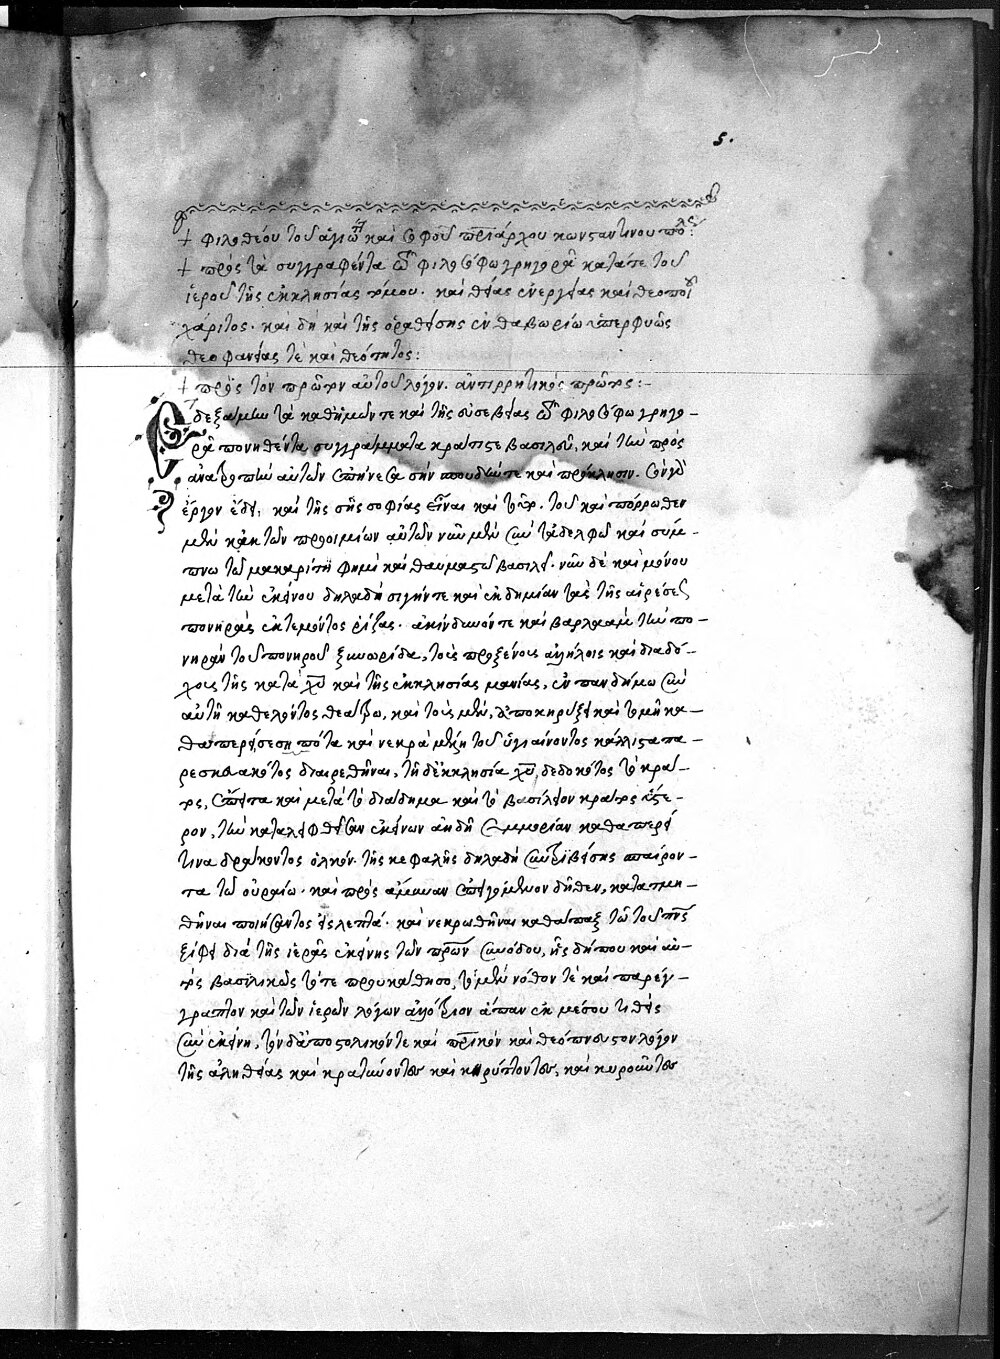 5.
+ φιλοθέου τοῦ ἁγιω καὶ σοφοῦ πριάρχου κωνσαντινουπόλε:
+ πρὸς τὰ συγγραφέντα τῶ φιλοσόφω γρηγορᾶ κατά τε τοῦ
ἱεροῦ τῆς ἐκκλησίας τόμου. καὶ θείας ἐνεργείας καὶ θεοποιοῦ
χάριτος. καὶ δὴ καὶ τῆς ὁραθείσης ἐν θαβωρίω ὑπερφυῶς
θεοφανείας τὲ καὶ θεότητος:
+ πρὸς τὸν πρῶτον αὐτοῦ λόγον. ἀντιρρητικὸς πρῶτος:-
Ἐδεξάμην τὰ καθ' ἡμῶν τε καὶ τῆς εὐσεβείας τῶ φιλοσόφω γρηγο-
ρᾶ πονηθέντα συγγράμματα κράτιστε βασιλεῦ, καὶ τὴν πρὸς
ἀνατροπὴν αὐτῶν ἐπήνεσα σὴν σπουδήν τε καὶ πρόκλησιν.
ἔργον ἔδει, καὶ τῆς σῆς σοφίας εἶναι καὶ τοῦτο. τοῦ καὶ πόρρωθεν
μὲν κἀκ τῶν προοιμίων αὐτῶν νῦν μὲν σὺν τἀδελφῶ καὶ σύμ-
πνω τῶ μακαρίτη φημὶ καὶ θαυμαστῶ βασιλεῖ. νῦν δὲ καὶ μόνου
μετὰ τὴν ἐκείνου δηλαδὴ σιγήν τε καὶ ἐκδημίαν τὰς τῆς αἱρέσεως
πονηρὰς ἐκτεμόντος ῥίζας. ἀκίνδυνόν τε καὶ βαρλαὰμ τὴν πο-
νηρὰν τοῦ πονηροῦ ξυνωρίδα, τοὺς προξένους ἀλλήλοις καὶ διαδό-
χους τῆς κατὰ χυ καὶ τῆς ἐκκλησίας μανίας, ἐν πανδήμω σὺν
αὐτῆ καθελόντος θεάτρω, καὶ τοὺς μὲν, ἀποκηρύξει καὶ τομῆ κα-
θάπερ σεσηπότα καὶ νεκρὰ μέλη τοῦ ὑγιαίνοντος κάλλιστα πα-
ρεσκευακότος διαιρεθῆναι, τῆ δ' ἐκκλησία χυ, δεδοκότος τὸ κρά-
τος, ἔπειτα καὶ μετὰ τὸ διάδημα καὶ τὸ βασίλειον κράτος ὕστε-
ρον, τὴν καταλειφθεῖσαν ἐκείνων συμμορίαν καθαπερεί
τινα δράκοντος ὁλκὸν τῆς κεφαλῆς δηλαδὴ συντριβείσης σπαίρον-
τα τῶ οὐραίω. καὶ πρὸς ἄμυναν ἐπειγόμενον δῆθεν, κατατμη-
θῆναι ποιήσαντος εἰς λεπτά. καὶ νεκρωθῆναι καθάπαξ τῶ τοῦ πνς
ξίφει διὰ τῆς ἱερᾶς ἐκείνης τῶν πρων συνόδου, ἧς δήπου καὶ αὐ-
τὸς βασιλικῶς τότε προυκάθησο, τὸ μὲν νόθον τὲ καὶ παρέγ-
γραπτον καὶ τῶν ἱερῶν λόγων ἀλλότριον ἅπαν ἐκ μέσου τιθεὶς
σὺν ἐκείνη, τὸν δ' ἀποστολικόν τε καὶ πρικὸν καὶ θεόπνευστον λόγον
τῆς ἀληθείας καὶ κρατύνοντος καὶ κηρύττοντος, καὶ κυροῦντος